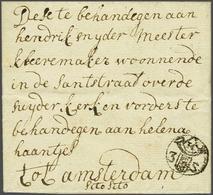 Dese te behandegen aan
hendrik snyder Meester
kleeremaker woonnende
in de Santstraat over de
suyder kerk en vorders te
behandegen aan helena
haantjes
tot amsterdam
sito sito
3 S